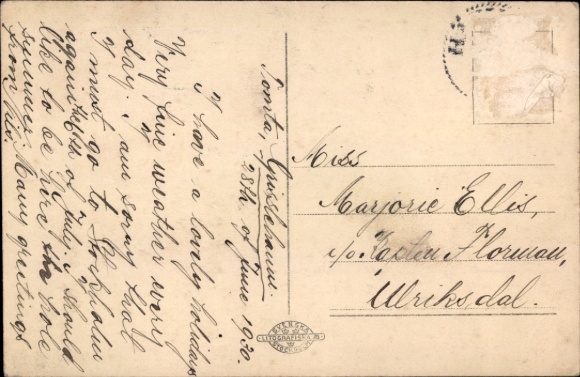 Tomta, Grisslehamn.
28th of June 1930.
I have a lovely holidays
Very fine weather every
day. I am sorry that
I must go to Stockholm
again the 6th of July. I should
like to be here the hole
summer. Many greetings
from
Miss
Marjorie Ellis,
c/o Florman,
Ulriksdal.
SVENSKA
LITOGRAFISKA